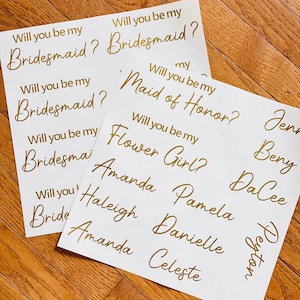 Will you be my
Bridesmaid?
Will you be my
Bridesmaid?
Will you be my
Bridesmaid?
Will you be my
Bridesmaid
Will you
Bride
Will you be my
Maid of Honor?
Will you be my
Flower Girl?
Amanda
Haleigh
Amanda
Pamela
Danielle
Celeste
Beny
DaCee
Peyton